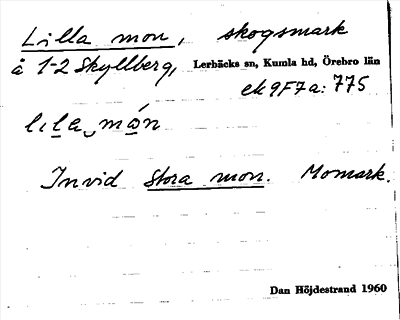 Lilla mon, skogsmark
å 1-2 Skyllberg, Lerbäcks sn, Kumla hd, Örebro län
ek 9F7a: 775
lıla món
Invid Stora mon. Momark.
Dan Höjdestrand 1960